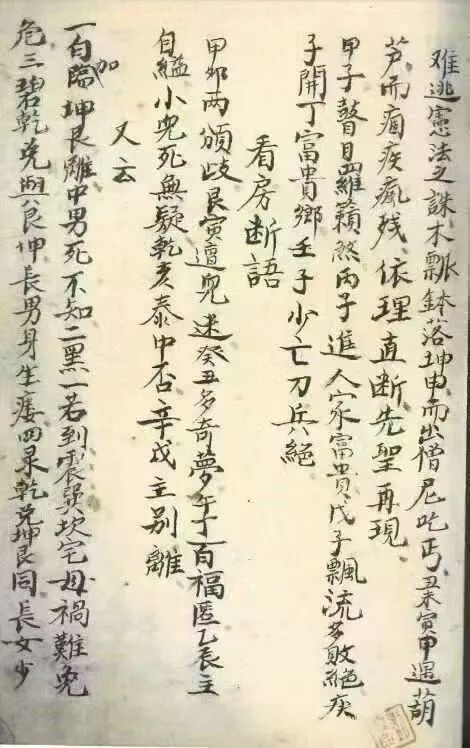 难逃憲法之誅木瓢鉢落坤申而出僧尼吃丐丑未寅甲遇葫
芦而痼疾瘋残依理直断先聖再現
甲子瞽目羅籟煞丙子進人家富貴戊子飄流多敗絕庚
子開丁富貴鄉壬子少亡刀兵絕
看房断語
甲卯两頒歧艮寅遭鬼迷癸丑多奇夢午丁百福匿乙辰主
自縊小兒死無疑乾亥泰中否辛戌主别離
又云
一白加臨坤艮離中男死不知二黑一若到震巽坎宅母禍難免
危三碧乾兑與艮坤長男身生瘘四彔乾兑坤艮同長女少